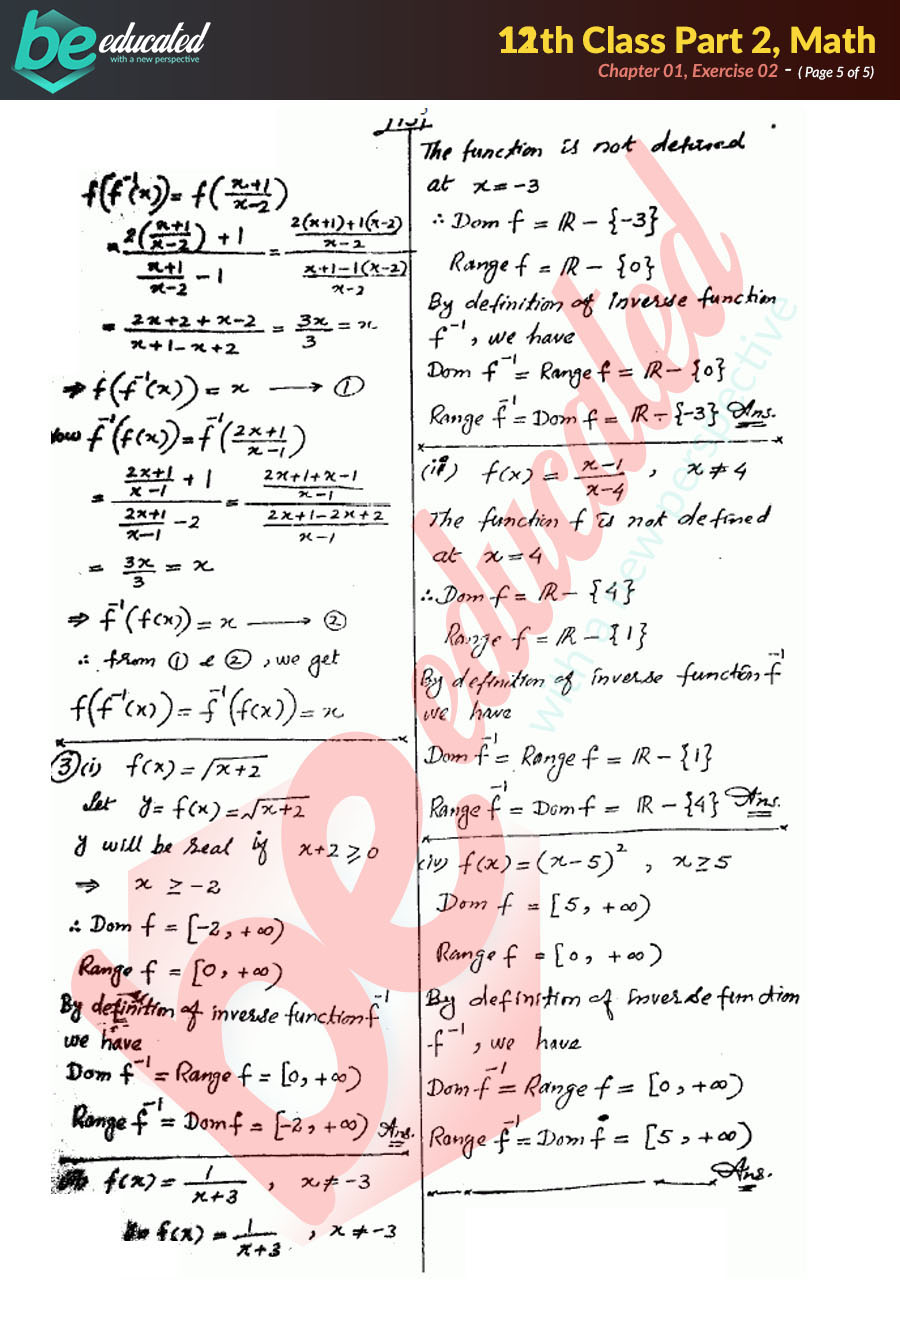 be educated
with a new perspective
12th Class Part 2, Math
Chapter 01, Exercise 02 - ( Page 5 of 5)
f(f⁻¹(x)) = f((x+1)/(x-2))
= (2((x+1)/(x-2)) + 1)/((x+1)/(x-2) - 1) = ((2(x+1)+1(x-2))/(x-2))/((x+1-1(x-2))/(x-2))
= (2x+2+x-2)/(x+1-x+2) = 3x/3 = x
⇒ f(f⁻¹(x)) = x → ①
Now f⁻¹(f(x)) = f⁻¹((2x+1)/(x-1))
= ((2x+1)/(x-1) + 1)/((2x+1)/(x-1) - 2) = ((2x+1+x-1)/(x-1))/((2x+1-2x+2)/(x-1))
= 3x/3 = x
⇒ f⁻¹(f(x)) = x → ②
∴ from ① & ②, we get
f(f⁻¹(x)) = f⁻¹(f(x)) = x
③(i) f(x) = √(x+2)
Let y = f(x) = √(x+2)
y will be real if x+2 ≥ 0
⇒ x ≥ -2
∴ Dom f = [-2, +∞)
Range f = [0, +∞)
By definition of inverse function f⁻¹
we have
Dom f⁻¹ = Range f = [0, +∞)
Range f⁻¹ = Dom f = [-2, +∞) Ans.
f(x) = 1/(x+3) , x ≠ -3
f(x) = 1/(x+3) , x ≠ -3
The function is not defined
at x = -3
∴ Dom f = R - {-3}
Range f = R - {0}
By definition of inverse function
f⁻¹, we have
Dom f⁻¹ = Range f = R - {0}
Range f⁻¹ = Dom f = R - {-3} Ans.
(iii) f(x) = (x-1)/(x-4) , x ≠ 4
The function f is not defined
at x = 4
∴ Dom f = R - {4}
Range f = R - {1}
By definition of inverse function f⁻¹
we have
Dom f⁻¹ = Range f = R - {1}
Range f⁻¹ = Dom f = R - {4} Ans.
(iv) f(x) = (x-5)² , x ≥ 5
Dom f = [5, +∞)
Range f = [0, +∞)
By definition of inverse function
f⁻¹, we have
Dom f⁻¹ = Range f = [0, +∞)
Range f⁻¹ = Dom f = [5, +∞)
Ans.
be educated
with a new perspective